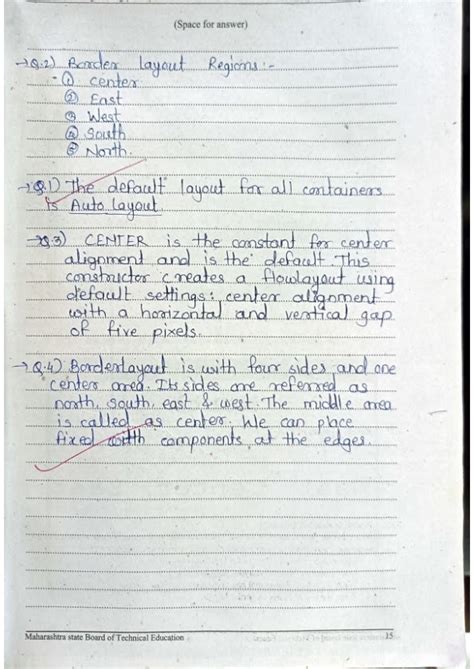 (Space for answer)
→Q.2) Border layout Regions:-
- ① Center
② East
③ West
④ South
⑤ North.
→Q.1) The default layout for all containers
is Auto layout
→Q.3) CENTER is the constant for center
alignment and is the default This
constructor creates a flowlayout using
default settings: center alignment
with a horizontal and vertical gap
of five pixels.
→Q.4) Borderlayout is with four sides and one
center area. Its sides are referred as
north, south, east & west. The middle area
is called as center. We can place
fixed width components at the edges.
Maharashtra state Board of Technical Education 15